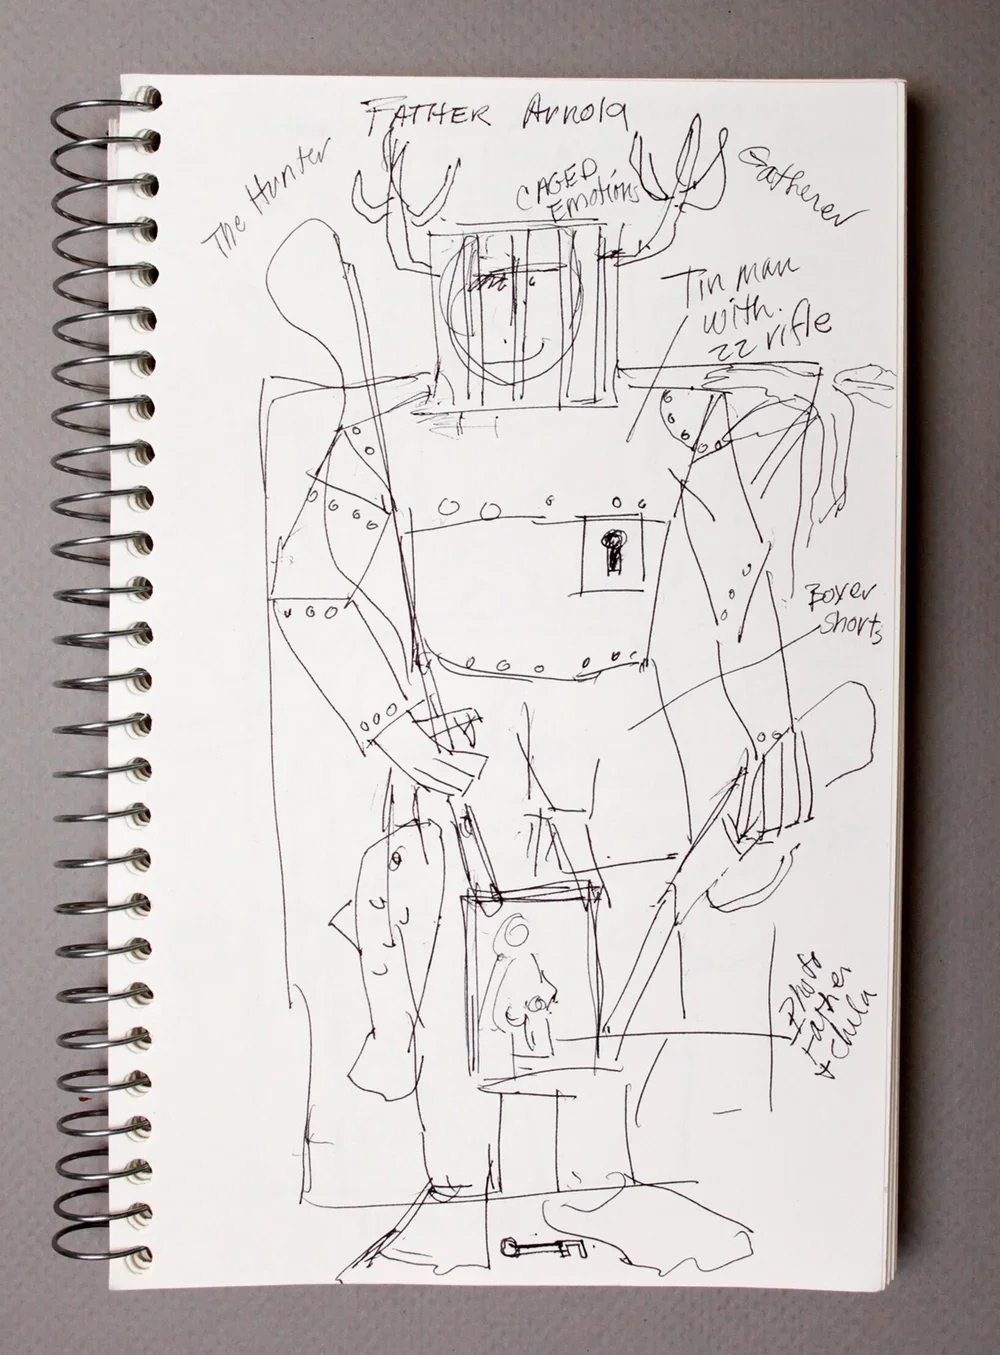 FATHER Arnold
The Hunter
CAGED
Emotions
Gatherer
Tin man
with
22 rifle
Boxer
Shorts
Photo
Father
+ child